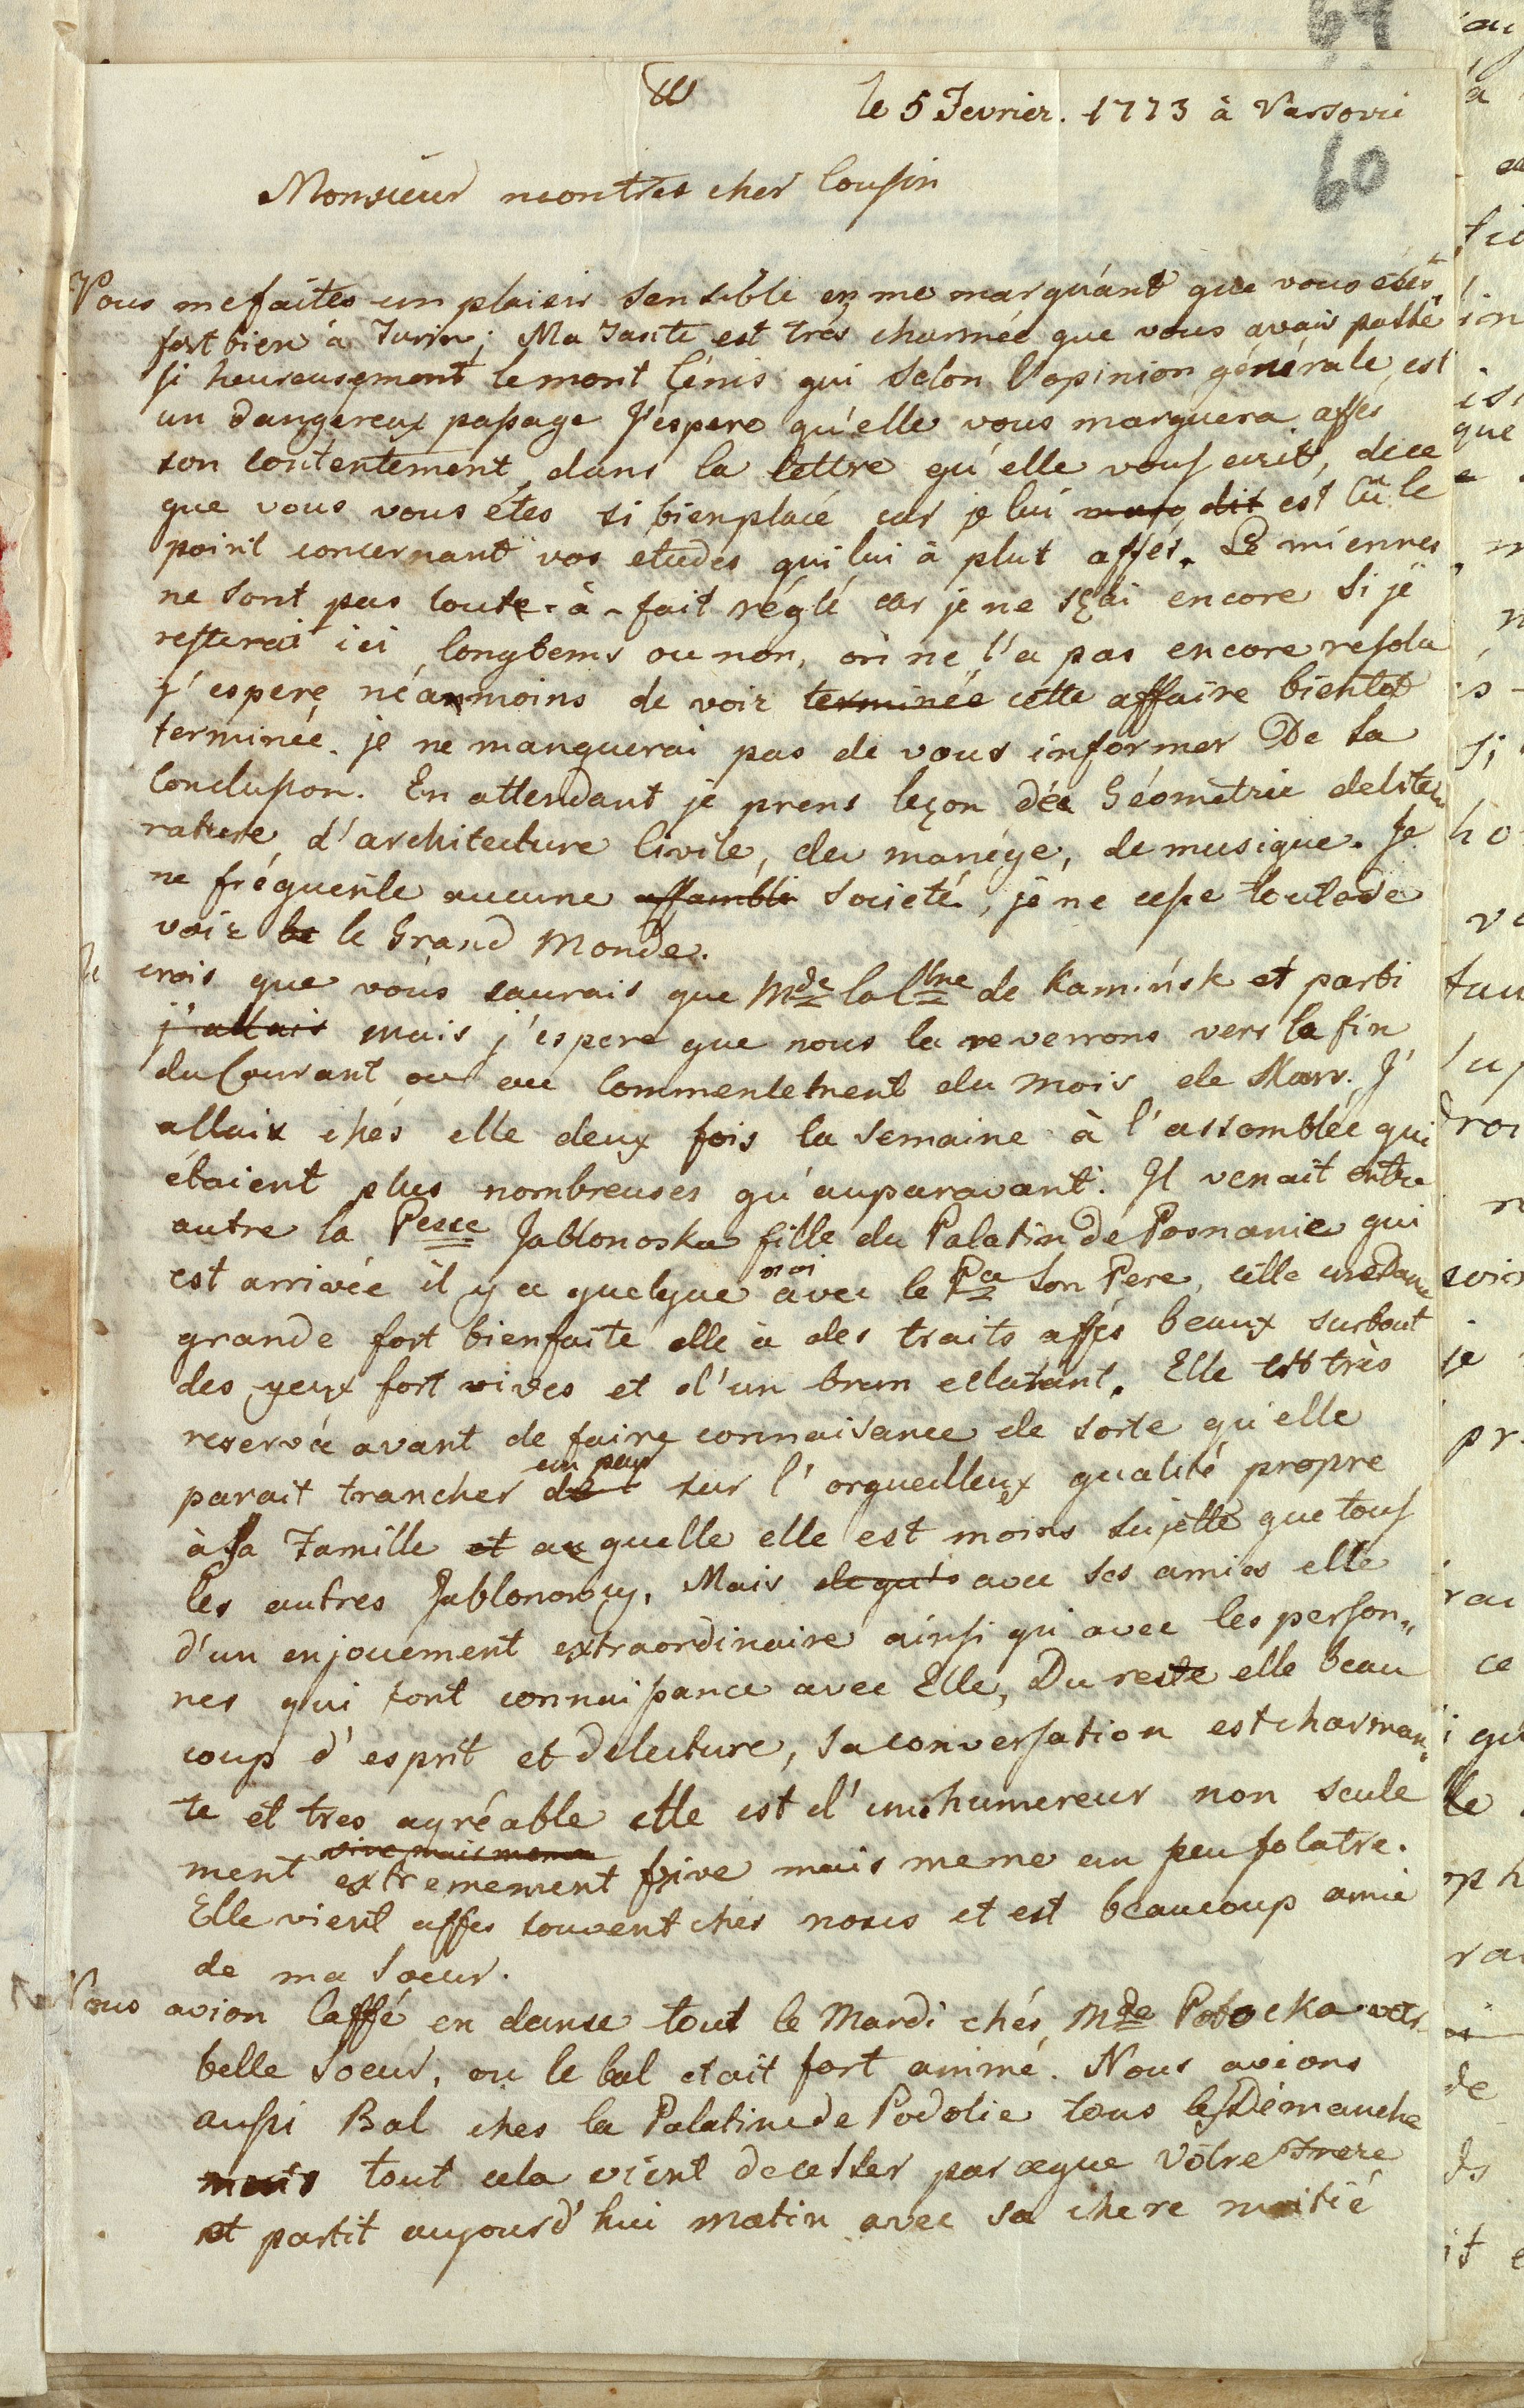 le 5 Fevrier. 1773 à Varsovie
60
Monsieur mon tres cher Cousin
Vous me faites un plaisir sensible en me marquánt que vous étes
fort bien à Turin; Ma Tante est trés charmée que vous avais passé
si heureusement le mont Cénis qui selon l'opinion générale, est
un dangereux passage J'éspere qu'elle vous marquera assés
son contentement dans la lettre qu'elle vous ecrit, de ce
que vous vous étes si bien placé car je lui marq dit est lû le
point concernant vos etudes qui lui à plut assés. Le miennes
ne sont pas toute-à-fait réglé car je ne sçai encore si je
resterai ici longtems ou non, on ne l'a pas encore resolu
j'espere néanmoins de voir terminée cette affaire bientot
terminée. je ne manquerai pas de vous informer De sa
Conclusion. En attendant je prens leçon dée Géométrie de lite
rature d'architecture Civile, deu manége, de musique. Je
ne fréquente aucune assamblé societé, je ne cesse toute de
voir le le Grand Monde.
Je crois que vous saurais que Mde la Cne de Kamińsk et parti
j'allais mais j'espere que nous la reverrons vers la fin
du Courant ou au Commencement du mois de Mars. J'
allaix chés elle deux fois la semaine à l'assomblée qui
étaient plus nombreuses qu'auparavant. Il venait entre
autre la Pesse Jablonoska fille du Palatin de Posnanie qui
est arrivée il y a quelque moi avec le Pce son Pere, elle est
grande fort bien faite elle à des traits assés beaux surtout
des yeux fort vives et d'un brun ellatant. Elle est très
reservée avant de faire connaisance de sorte qu'elle
parait trancher de un peux sur l'orgueilleux qualité propre
à sa Famille et au quelle elle est moins sujette que tous
les autres Jablonowsy. Mais depuis avec ses amies elle
d'un enjouement extraordinaire ainsi qu'avec les person„
nes qui font connaissance avec Elle, Du reste elle beau
coup d'esprit et de lecture, sa conversation est charman„
te et tres agréable elle est d'une humereur non seule
ment vive mais meme extremement vive mais meme un peu folatre.
Elle vient assés souvent chés nous et est beaucoup amie
de ma soeur.
Nous avion Caffé en danse tout le Mardi chés Mde Potocka votr
belle soeur, ou le bal etait fort animé. Nous avions
aussi Bal ches la Palatine de Podolie tous les Démanche
mais tout cela vient de cesser parceque Vôtre Frere
et partit aujourd'hui matin avec sa chere moitié